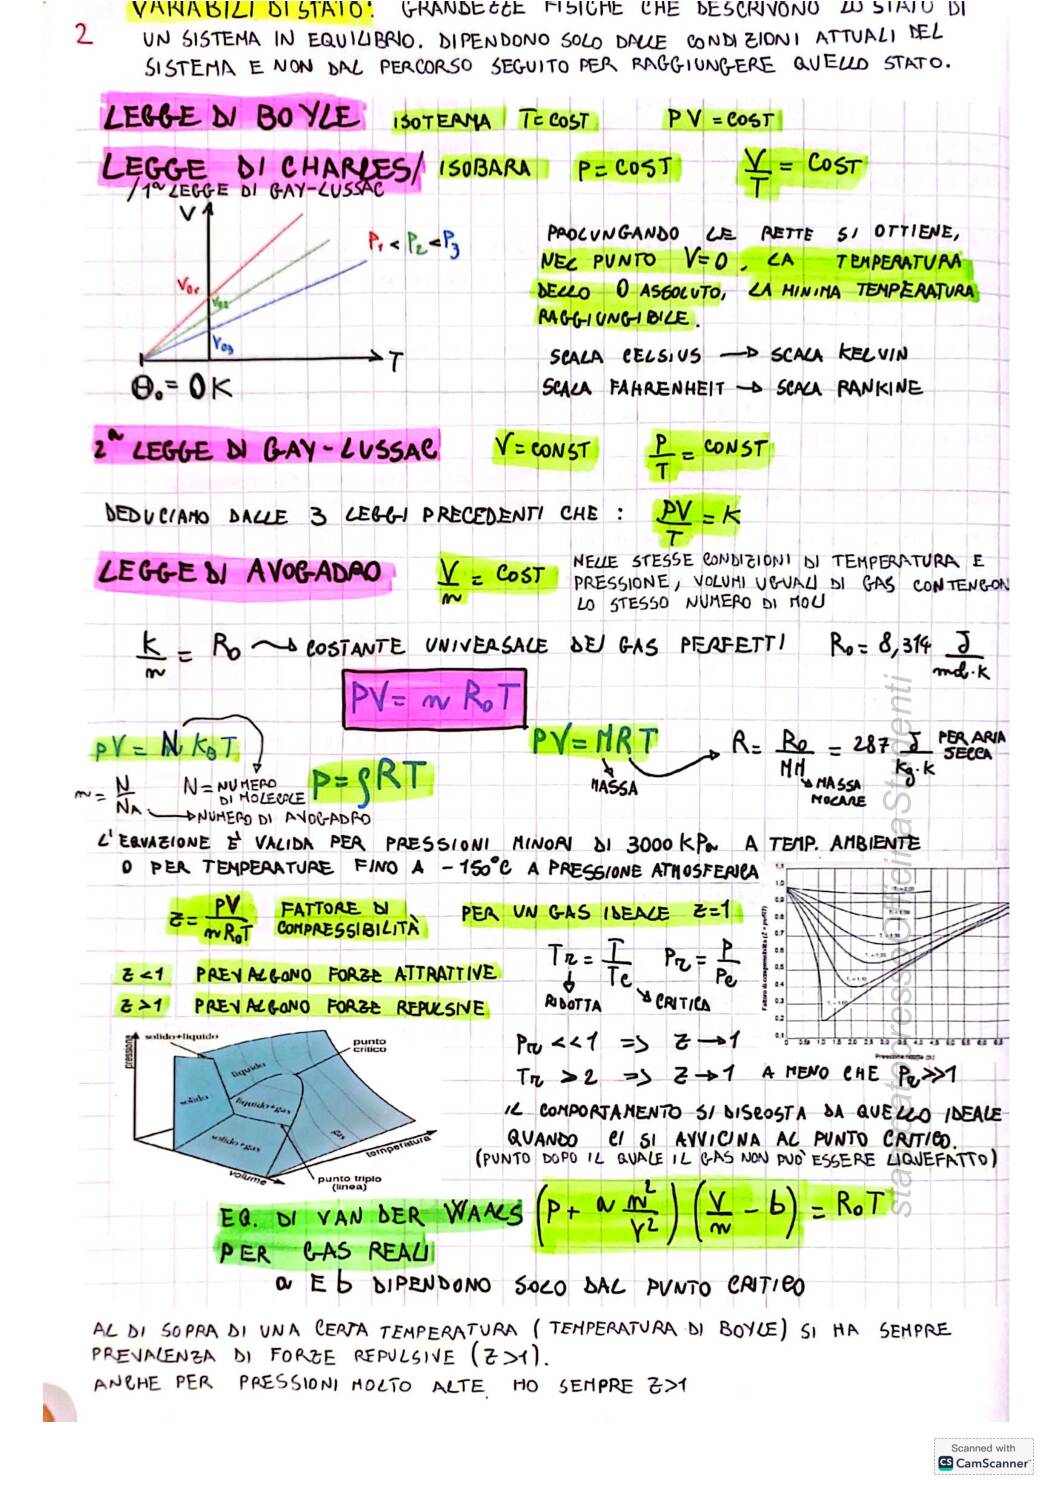 VARIABILI DI STATO: GRANDEZZE FISICHE CHE DESCRIVONO LO STATO DI
2
UN SISTEMA IN EQUILIBRIO. DIPENDONO SOLO DALLE CONDIZIONI ATTUALI DEL
SISTEMA E NON DAL PERCORSO SEGUITO PER RAGGIUNGERE QUELLO STATO.
LEGGE DI BOYLE ISOTERMA T=COST PV=COST
LEGGE DI CHARLES/ ISOBARA P=COST V/T = COST
/1ª LEGGE DI GAY-LUSSAC
V
P₁<P₂<P₃
V₀₁
V₀₂
V₀₃
T
Θ₀=0K
PROLUNGANDO LE RETTE SI OTTIENE,
NEL PUNTO V=0, LA TEMPERATURA
DELLO 0 ASSOLUTO, LA MINIMA TEMPERATURA
RAGGIUNGIBILE.
SCALA CELSIUS → SCALA KELVIN
SCALA FAHRENHEIT → SCALA RANKINE
2ª LEGGE DI GAY-LUSSAC V=CONST P/T = CONST
DEDUCIAMO DALLE 3 LEGGI PRECEDENTI CHE: PV/T = K
LEGGE DI AVOGADRO V/n = COST
NELLE STESSE CONDIZIONI DI TEMPERATURA E
PRESSIONE, VOLUMI UGUALI DI GAS CONTENGON
LO STESSO NUMERO DI MOLI
K/n = R₀ → COSTANTE UNIVERSALE DEI GAS PERFETTI R₀=8,314 J/mol·K
PV=nR₀T
PV=NK_BT
n=N/N_A
N=NUMERO
DI MOLECOLE
NUMERO DI AVOGADRO
P=ρRT
PV=MRT
MASSA
R=R₀/MM = 287 J/Kg·K PER ARIA
SECCA
MASSA
MOLARE
L'EQUAZIONE È VALIDA PER PRESSIONI MINORI DI 3000 KPa A TEMP. AMBIENTE
O PER TEMPERATURE FINO A -150°C A PRESSIONE ATMOSFERICA
Z=PV/nR₀T FATTORE DI
COMPRESSIBILITÀ
PER UN GAS IDEALE Z=1
Z<1 PREVALGONO FORZE ATTRATTIVE
Z>1 PREVALGONO FORZE REPULSIVE
Tr=T/Tc Pr=P/Pc
RIDOTTA CRITICA
Pr<<1 => Z→1
Tr>2 => Z→1 A MENO CHE Pr>>1
pressione
solido+liquido
punto
critico
liquido
solido
liquido+gas
solido+gas
gas
temperatura
volume
punto triplo
(linea)
IL COMPORTAMENTO SI DISCOSTA DA QUELLO IDEALE
QUANDO CI SI AVVICINA AL PUNTO CRITICO.
(PUNTO DOPO IL QUALE IL GAS NON PUÒ ESSERE LIQUEFATTO)
EQ. DI VAN DER WAALS (P+a n²/V²)(V/n - b)=R₀T
PER GAS REALI
a E b DIPENDONO SOLO DAL PUNTO CRITICO
AL DI SOPRA DI UNA CERTA TEMPERATURA (TEMPERATURA DI BOYLE) SI HA SEMPRE
PREVALENZA DI FORZE REPULSIVE (Z>1).
ANCHE PER PRESSIONI MOLTO ALTE HO SEMPRE Z>1
Scanned with
CS CamScanner